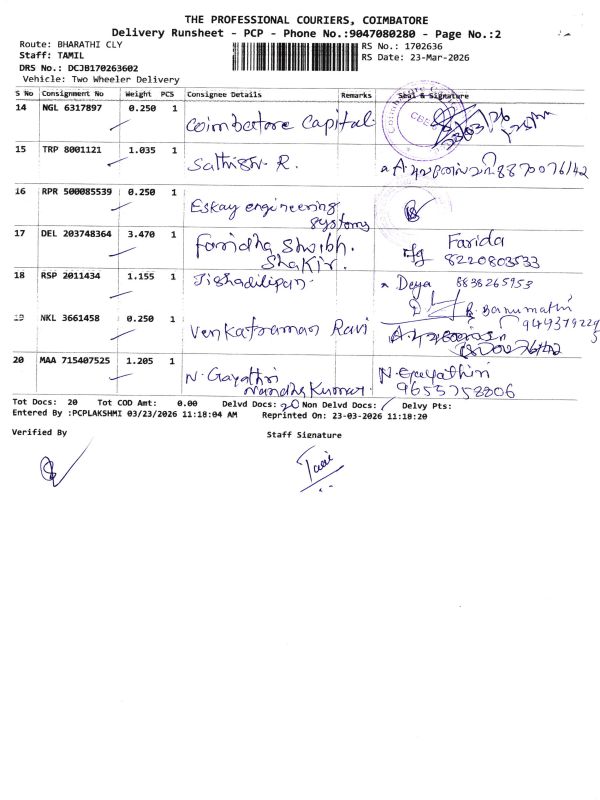 THE PROFESSIONAL COURIERS, COIMBATORE
Delivery Runsheet - PCP - Phone No.:9047080280 - Page No.:2
Route: BHARATHI CLY
RS No.: 1702636
Staff: TAMIL
RS Date: 23-Mar-2026
DRS No.: DCJB170263602
Vehicle: Two Wheeler Delivery
S No Consignment No Weight PCS Consignee Details Remarks Seal & Signature
14 NGL 6317897 0.250 1 Coimbatore Capital 23/03/26
15 TRP 8001121 1.035 1 Sathish. R. 8870076142
16 RPR 500085539 0.250 1 Eskay engineering
systems
17 DEL 203748364 3.470 1 Faridha Farida
Shakir. 8220803533
18 RSP 2011434 1.155 1 Jishadilipan. Deya 8838265953
B. Banumathi
19 NKL 3661458 0.250 1 Venkatraman Ravi
20 MAA 715407525 1.205 1 N. Gayathri N. Gayathiri
Nandha Kumar. 9655758806
Tot Docs: 20 Tot COD Amt: 0.00 Delvd Docs: 20 Non Delvd Docs: / Delvy Pts:
Entered By :PCPLAKSHMI 03/23/2026 11:18:04 AM Reprinted On: 23-03-2026 11:18:20
Verified By Staff Signature